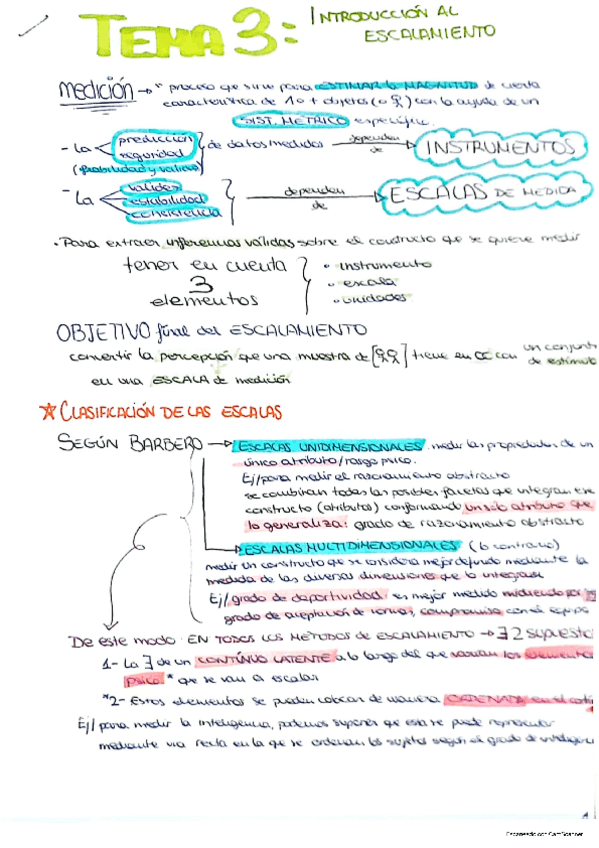 TEMA 3: INTRODUCCIÓN AL
ESCALAMIENTO
medición → "proceso que sirve para ESTIMAR la MAGNITUD de cierta
característica de 1 o + objetos (o ) con la ayuda de un
SIST. MÉTRICO específico.
- La predicción
seguridad de datos medidos dependen de → INSTRUMENTOS
(fiabilidad y validez)
- La validez
estabilidad
consistencia dependen de → ESCALAS DE MEDIDA
· Para extraer inferencias válidas sobre el constructo que se quiere medir
tener en cuenta
3
elementos
· instrumento
· escala
· unidades
OBJETIVO final del ESCALAMIENTO
convertir la percepción que una muestra de [ ] tiene en con un conjunto
de estímul
en una ESCALA de medición
* CLASIFICACIÓN DE LAS ESCALAS
SEGÚN BARBERO → ESCALAS UNIDIMENSIONALES medir las propiedades de un
único atributo/rasgo psico.
Ej/ para medir el razonamiento abstracto
se combinan todas las posibles facetas que integran ese
constructo (atributos) conformando un solo atributo que
lo generaliza: grado de razonamiento abstracto
→ ESCALAS MULTIDIMENSIONALES (lo contrario)
medir un constructo que se considera mejor definido mediante la
medida de las diversas dimensiones que lo integran
Ej/ grado de deportividad es mejor medido midiendo por
grado de aceptación de normas, compromiso con el equipo
De este modo EN TODOS LOS MÉTODOS DE ESCALAMIENTO → ∃ 2 supuesto
1- La ∃ de un CONTÍNUO LATENTE a lo largo del que varían los elementos
psico. * que se van a escalar
*2- Estos elementos se pueden colocar de manera ORDENADA en el
Ej/ para medir la inteligencia, podemos suponer que esta se puede representar
mediante una recta en la que se ordenan los sujetos según el grado de inteligenci
Escaneado con CamScanner